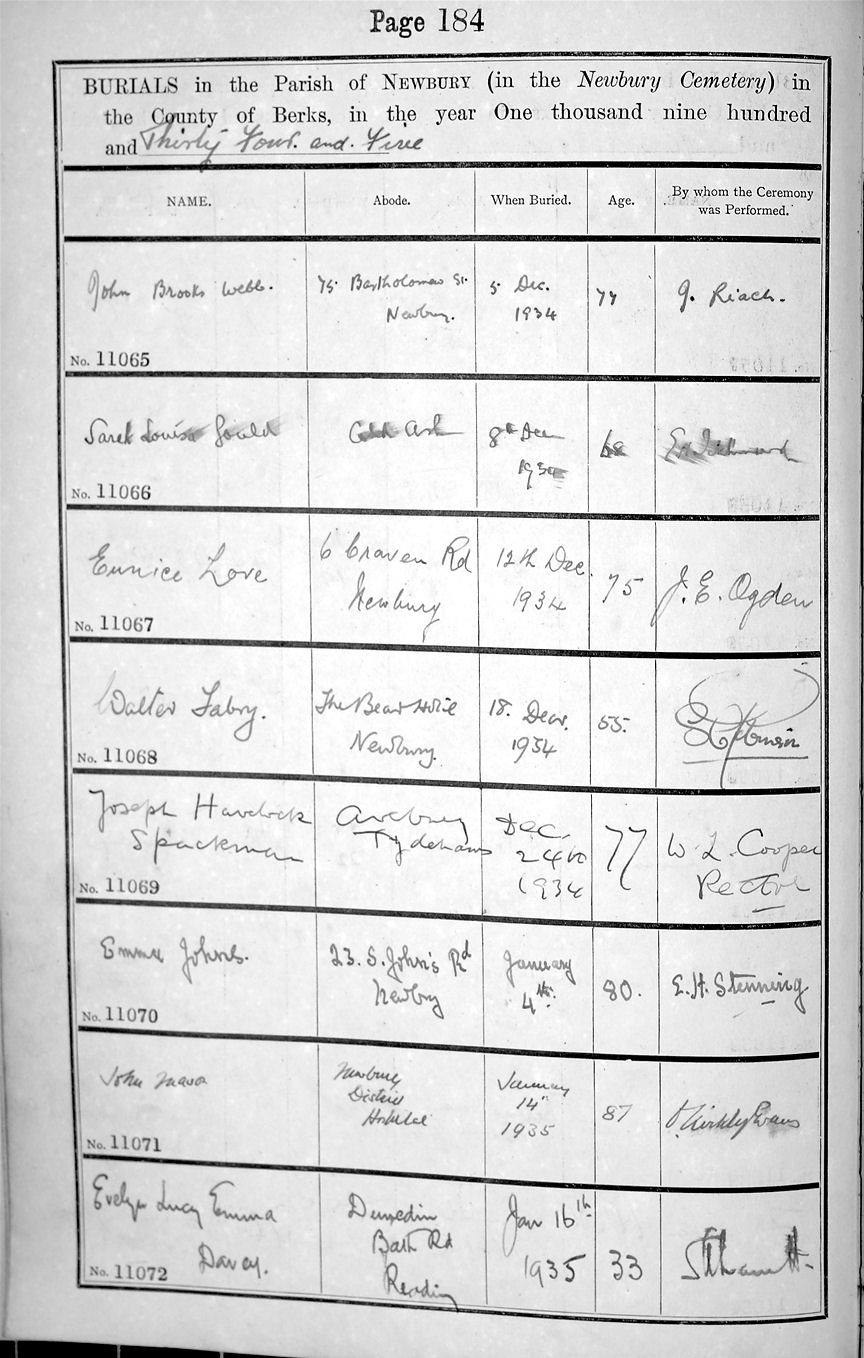 Page 184
BURIALS in the Parish of NEWBURY (in the Newbury Cemetery) in
the County of Berks, in the year One thousand nine hundred
and Thirty Four. and. Five
NAME.
Abode.
When Buried.
Age.
By whom the Ceremony
was Performed.
John Brooks Webb.
75. Bartholomew St.
Newbury.
5. Dec.
1934
77
J. Riach.
No. 11065
Sarah Louisa Gould
Cold Ash
8th Dec
1934
68
No. 11066
Eunice Love
6 Craven Rd
Newbury
12th Dec.
1934
75
J. E. Ogden
No. 11067
Walter Fabry.
The Bear
Newbury.
18.
1934
55.
No. 11068
Joseph Havelock
Spackman
Avebury
Tydehams
Dec.
24th
1934
77
W. L. Cooper
Rector
No. 11069
Emma
23. S. John's Rd
Newbury
January
4th.
80.
E. H. Stenning
No. 11070
John
Newbury
District
Hospital
January
14th
1935
87
Kirkby Evans
No. 11071
Evelyn Lucy Emma
Davey.
Dunedin
Bath Rd
Reading
Jan 16th
1935
33
No. 11072